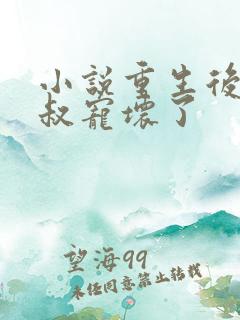 小説重生後
叔寵壞了
望海99
未经同意禁止转载